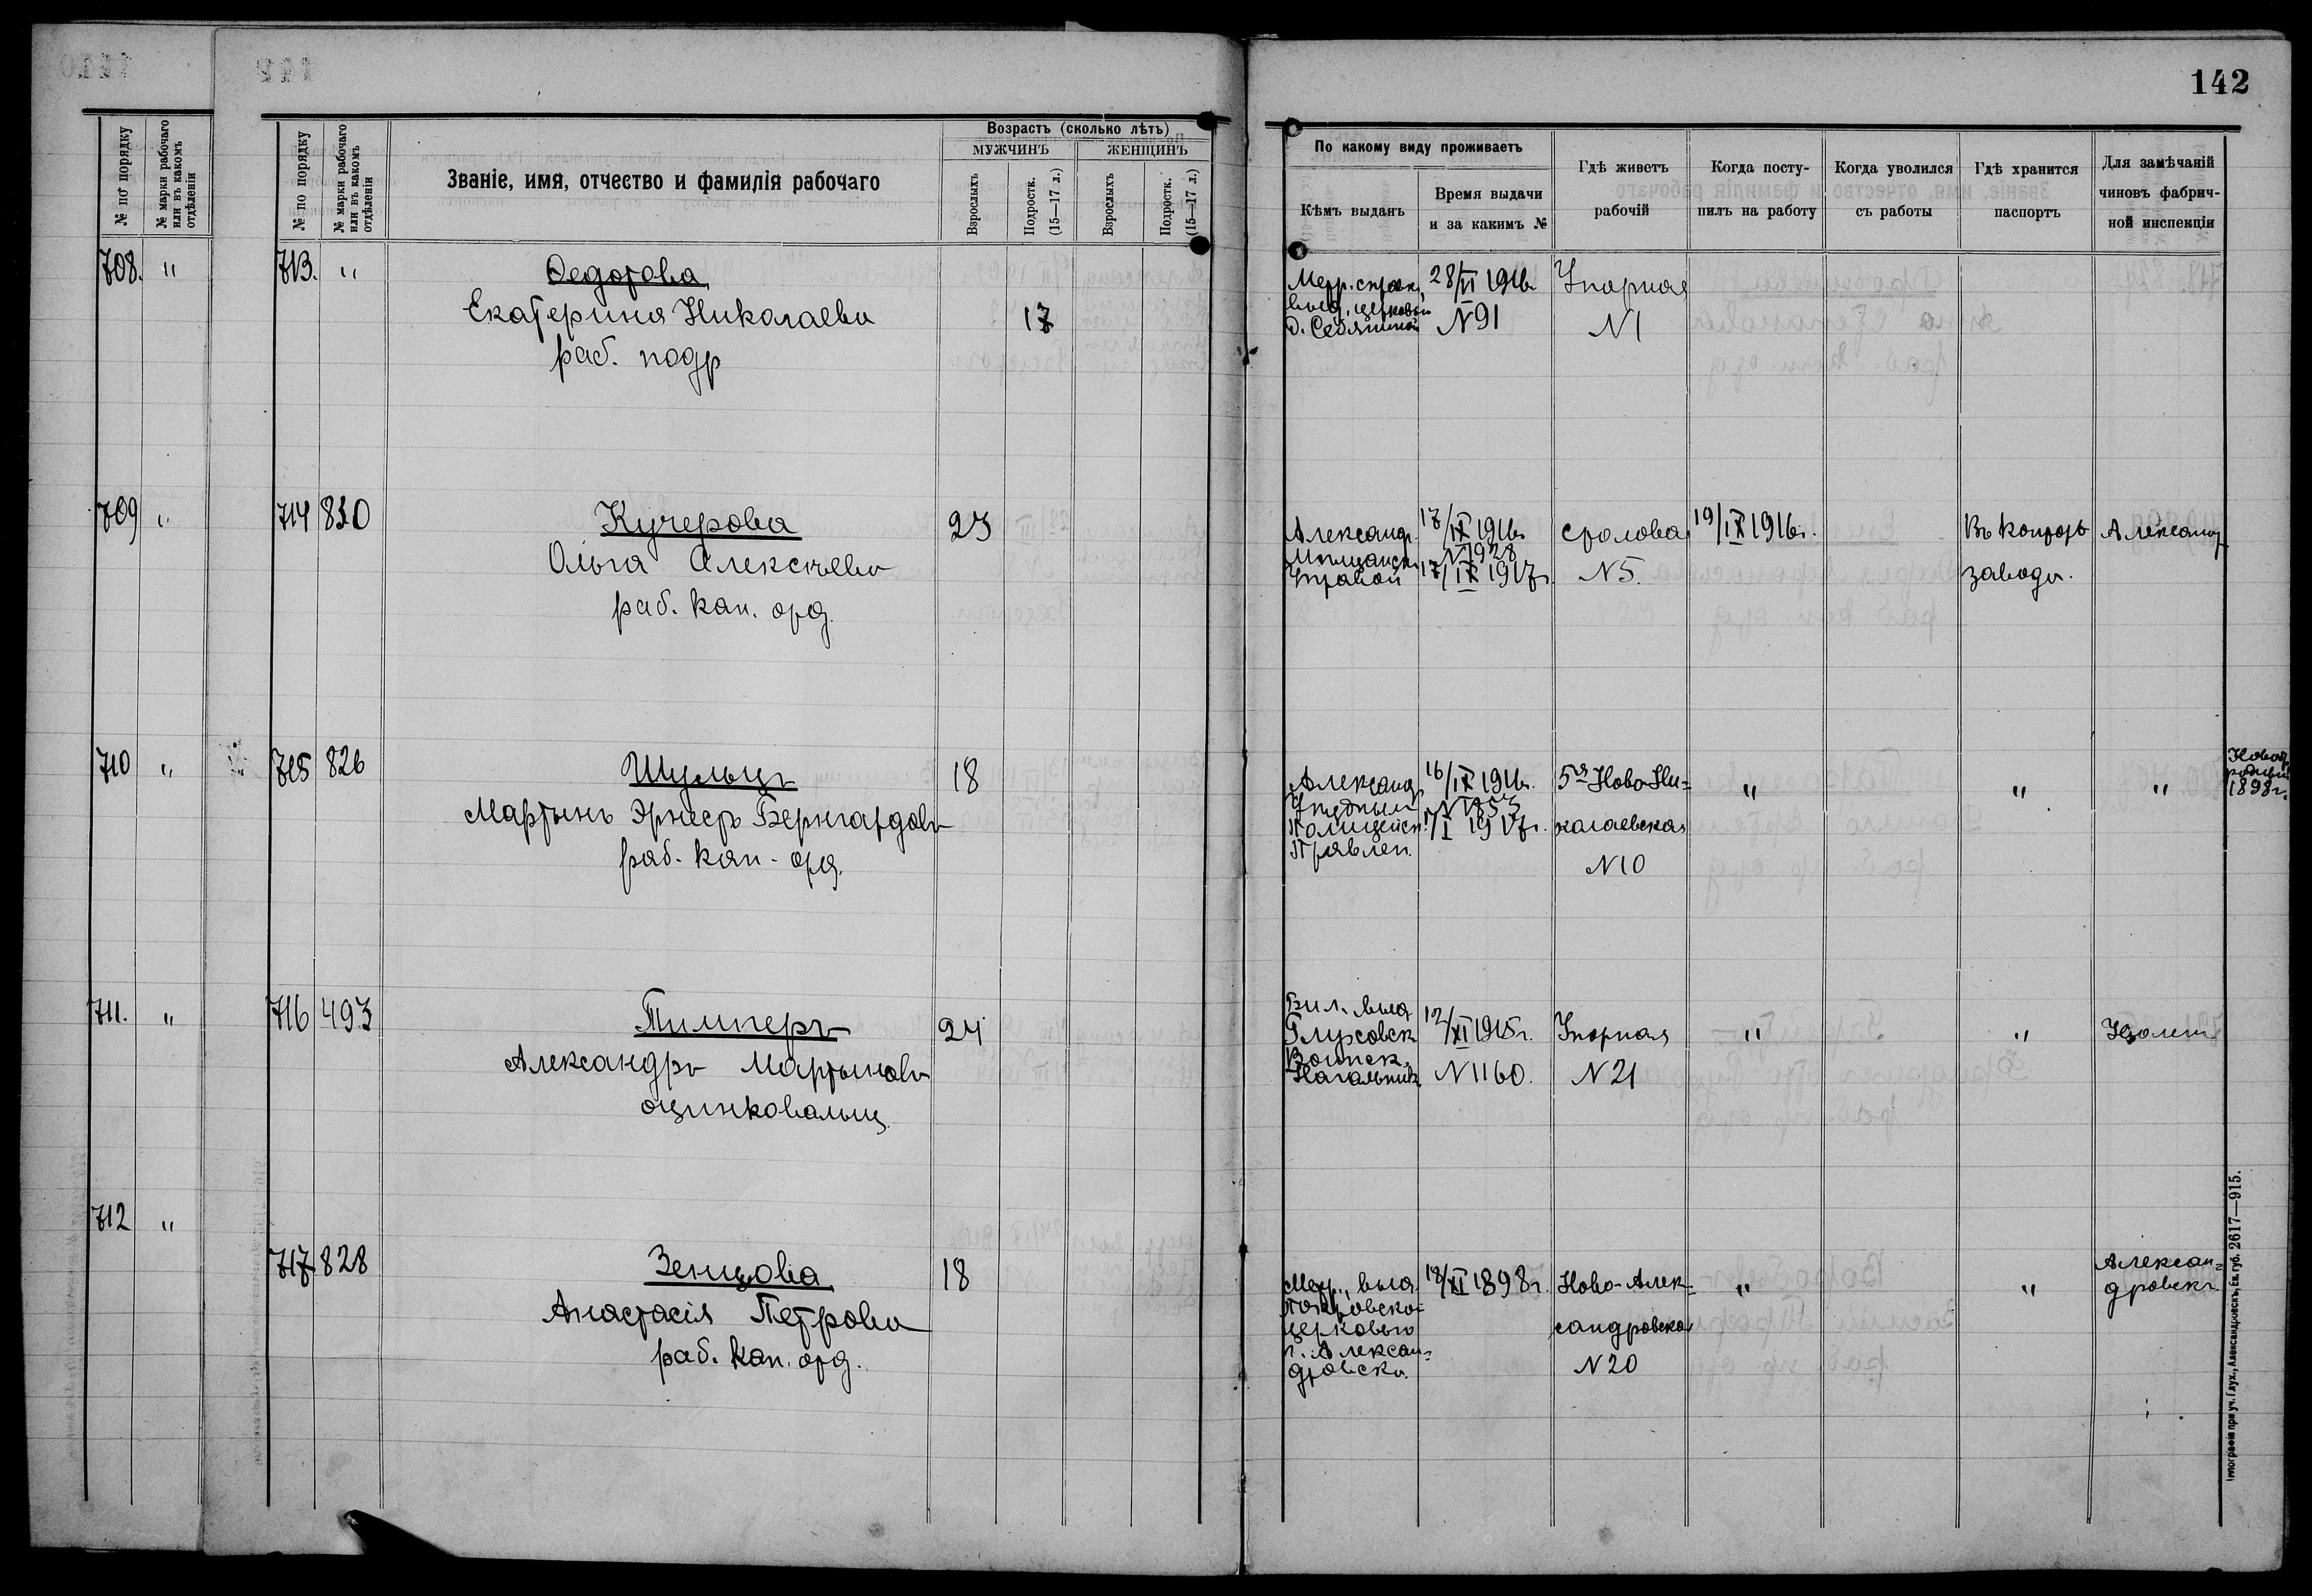 142
№ по порядку
№ марки рабочаго
или въ какомъ
отдѣленіи
708. "
709 "
710 "
711. "
712 "
№ по порядку
№ марки рабочаго
или въ какомъ
отдѣленіи
Званіе, имя, отчество и фамилія рабочаго
Возрастъ (сколько лѣтъ)
МУЖЧИНЪ
ЖЕНЩИНЪ
Взрослыхъ
Подростк.
(15—17 л.)
Взрослыхъ
Подростк.
(15—17 л.)
По какому виду проживаетъ
Кѣмъ выданъ
Время выдачи
и за какимъ №
Гдѣ живетъ
рабочій
Когда посту-
пилъ на работу
Когда уволился
съ работы
Гдѣ хранится
паспортъ
Для замѣчаній
чиновъ фабрич-
ной инспекціи
713. "
Федотова
Екатерина Николаевна
раб. подр
17
Метр.
выд. церковью
28/VI 1916
N 91
Упорная
N 1
714 830
Кучерова
Ольга Алексѣевна
раб. кан. отд.
23
Александр.
Мѣщанск.
Управой
17/IX 1916.
N 1928
17/IX 1917г.
Столовая
N 5.
19/IX 1916г.
Въ конторѣ
завода.
Александр
715 826
Шульцъ
Мартынъ Эрнестъ Бернгардовъ
раб. кан. отд.
18
Александр
Уѣздным
Полицейск.
Правлен.
16/IX 1916.
N 1853
1/I 1917г.
5я Ново-Ни=
колаевская
N 10
" " "
1898г.
716 493
Тимперъ
Александръ Мартыновъ
оцинковальщ.
24
Бил. выд.
Воинск.
Начальник
12/XI 1915г.
N 1160.
Упорная
N 21
" "
717 828
Зенцова
Анастасія Петровна
раб. кан. отд.
18
Метр., выд.
Покровско=
церковью
г. Алексан=
дровска.
18/XI 1898г.
Ново-Алек=
сандровская
N 20
" "
Алексан=
дровскъ
Типографія при уч. Глух., Александровскъ, Ек. губ. 2617—915.